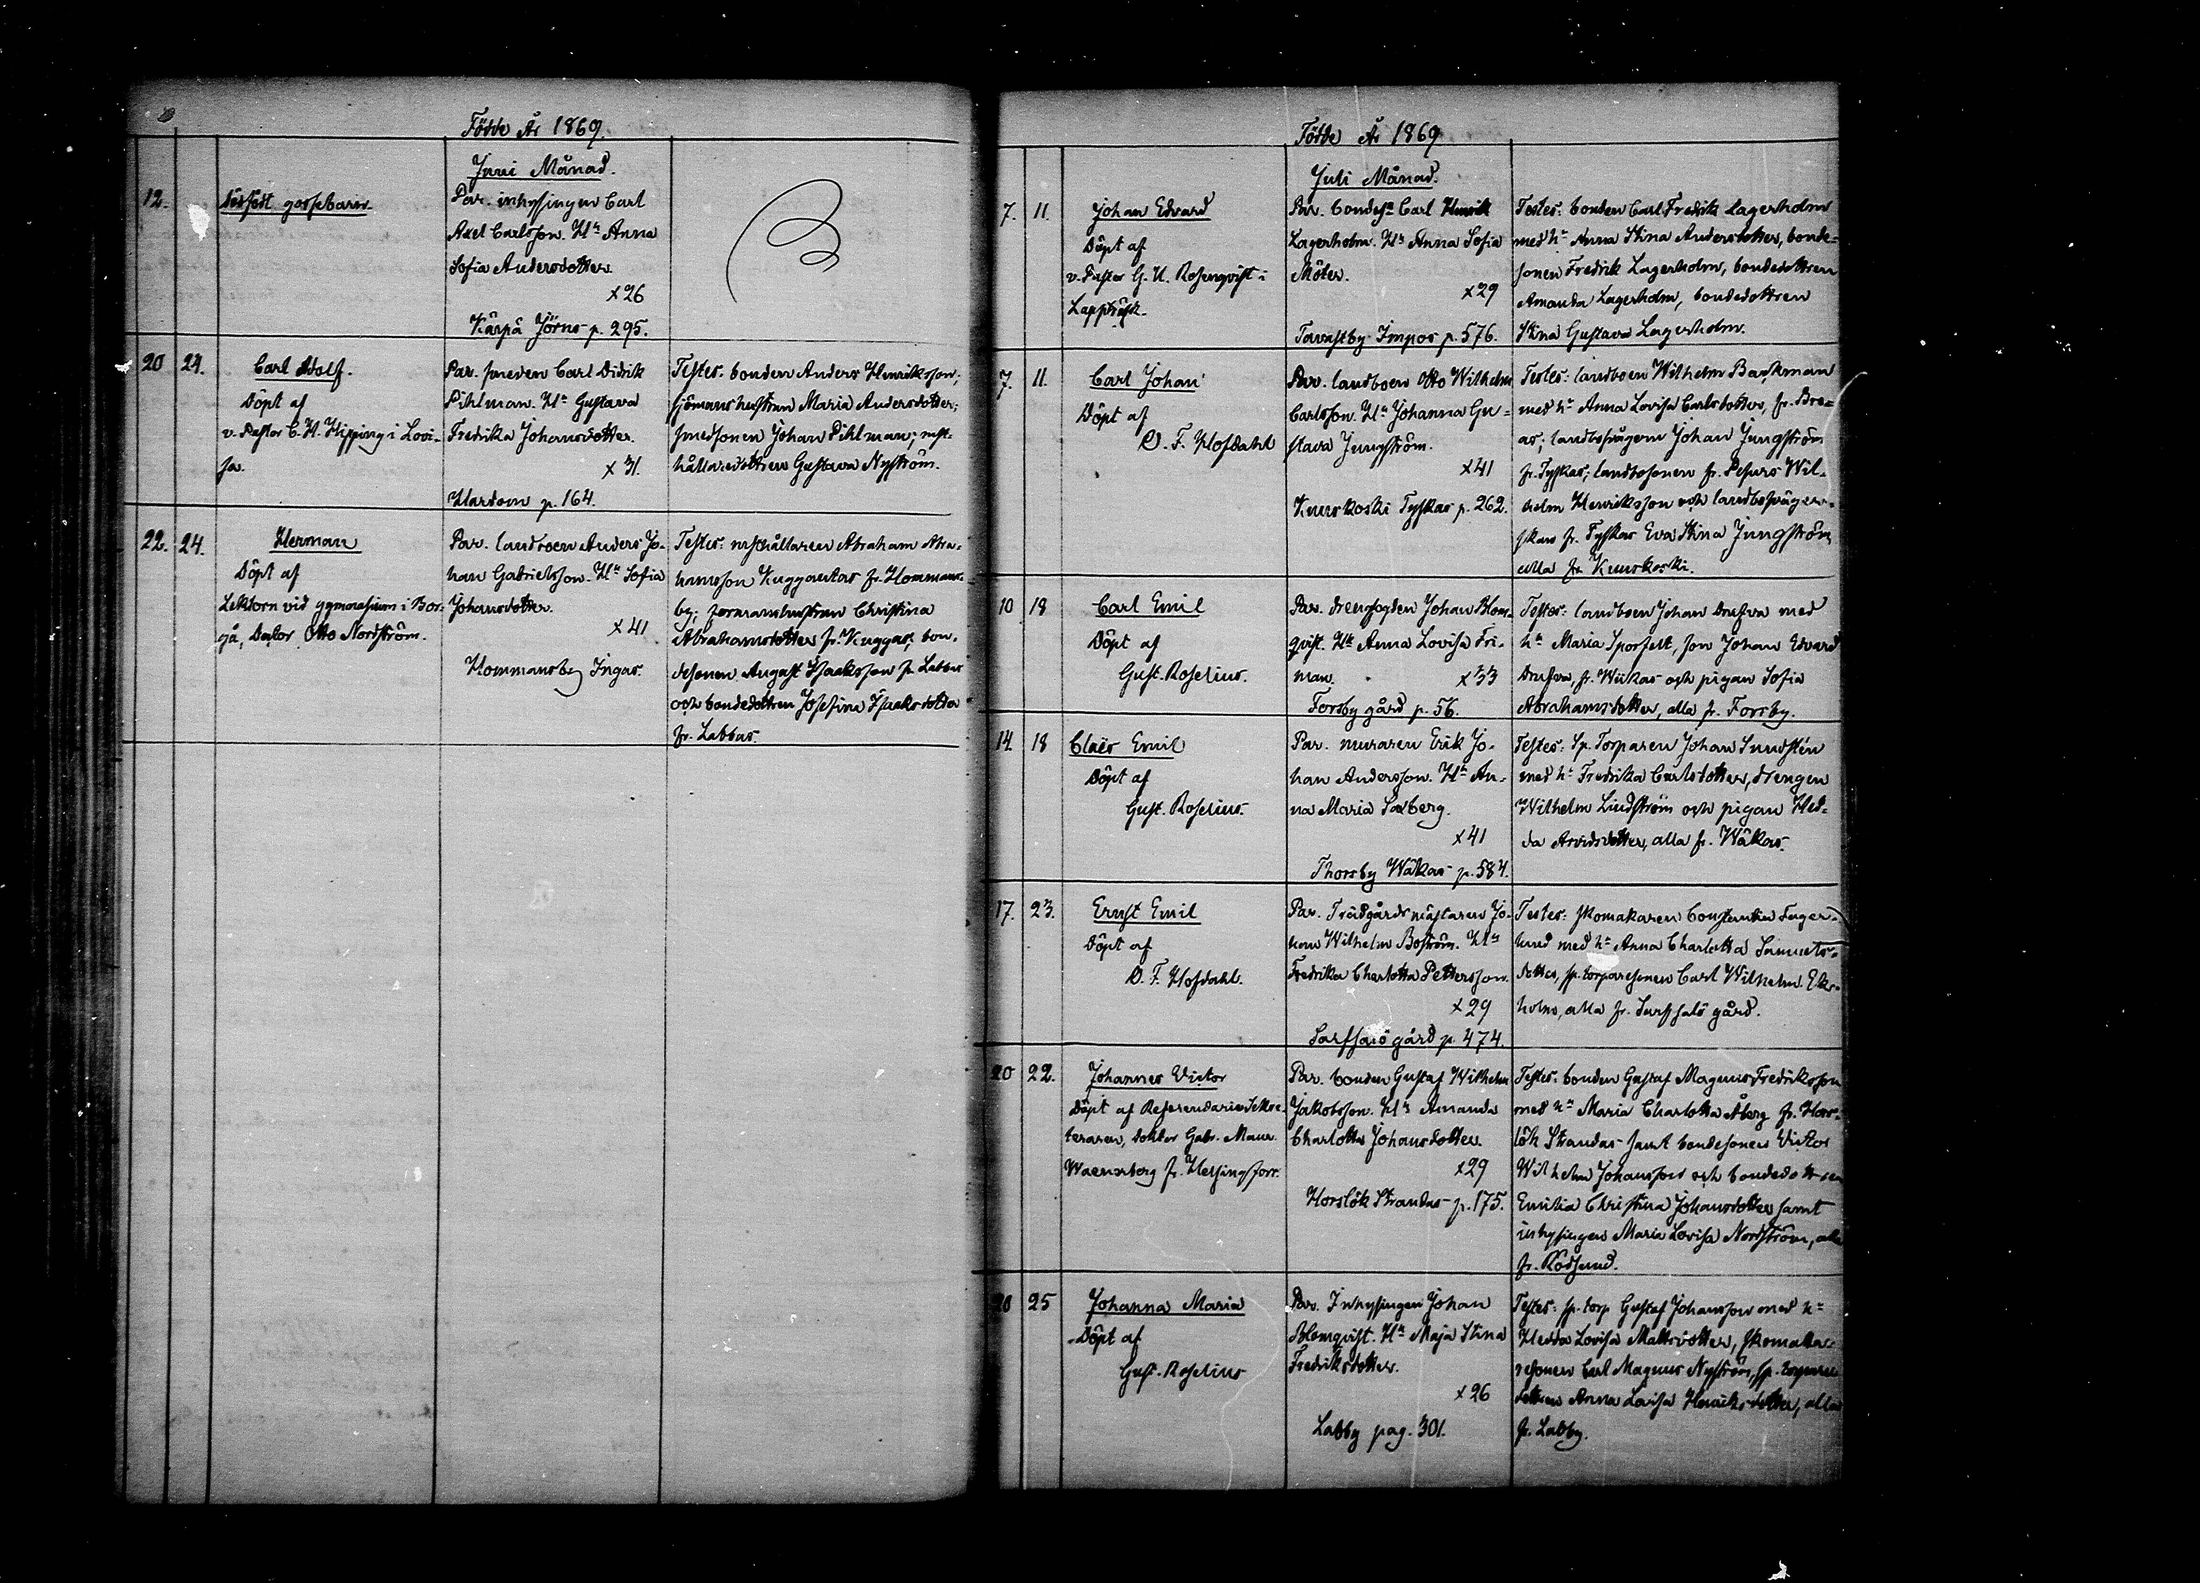 Födde År 1869.
Juni Månad.
12.
Dödfödt gossebarn.
Par. inhysingen Carl
Axel Carlsson. H:n Anna
Sofia Andersdotter.
×26
Kärpä Jörns p. 295.
20 24.
Carl Adolf.
Döpt af
v. Pastor C. H. Hipping i Lovi-
sa.
Par. smeden Carl Didrik
Pihlman. H:n Gustava
Fredrika Johansdotter.
×31.
Hardom p. 164.
Testes: bonden Anders Henriksson;
sjömanshustrun Maria Andersdotter;
smedsonen Johan Pihlman;
hållaredottren Gustava Nyström.
22. 24.
Herman
Döpt af
Lektorn vid gymnasium i Bor-
gå, Otto Nordström.
Par. landboen Anders Jo-
han Gabrielsson. H:n Sofia
Johansdotter.
×41
Hommansby Ingas.
Testes: Abraham Abra-
hamsson Kuggantas fr. Hommans-
by; Christina
Abrahamsdotter fr. Kuggas; bon-
desonen August Isaksson fr. Labbas
och bondedottren Josefina Isaksdotter
fr. Labbas.
Födde År 1869
Juli Månad.
7. 11.
Johan Edvard
Döpt af
v. Pastor G. U. Rosenqvist i
Lappträsk.
Par. bondes:n Carl Henrik
Lagerholm. H:n Anna Sofia
Möller.
×29
Tavastby Impos p. 576.
Testes: bonden Carl Fredrik Lagerholm
med h:n Anna Stina Andersdotter, bonde-
sonen Fredrik Lagerholm, bondedottren
Amanda Lagerholm, bondedottren
Stina Gustava Lagerholm.
7. 11.
Carl Johan
Döpt af
D. F. Hofdahl
Par. landboen Otto Wilhelm
Carlsson. H:n Johanna Gu-
stava Jungström.
×41
Kuuskoski Tyskas p. 262.
Testes: landboen Wilhelm Backman
med h:n Anna Lovisa Carlsdotter, fr.
as; Johan Jungström
fr. Tyskas; landbosonen fr. Wil-
helm Henriksson och
fr. Tyskas Eva Stina Jungström,
alla fr. Kuuskoski.
10 18
Carl Emil
Döpt af
Gust. Roselius.
Par. drengfogden Johan Blom-
qvist. H:n Anna Lovisa Fri-
man.
×33
Forsby gård p. 56.
Testes: landboen Johan Drufva med
h:n Maria Sporfelt, son Johan Edvard
Drufva, fr. Wäkas och pigan Sofia
Abrahamsdotter, alla fr. Forsby.
14. 18
Claës Emil
Döpt af
Gust. Roselius.
Par. muraren Erik Jo-
han Andersson. H:n An-
na Maria Saxberg.
×41
Thorsby Wäkas p. 584.
Testes: Sp. Torparen Johan Sundstén
med h:n Fredrika Carlsdotter, drengen
Wilhelm Lindström och pigan Hed-
da Arvidsdotter, alla fr. Wäkas.
17. 23.
Ernst Emil
Döpt af
D. F. Hofdahl.
Par. Trädgårdsmästaren Jo-
han Wilhelm Boström. H:n
Fredrika Charlotta Pettersson.
×29
Sarfsalö gård p. 474.
Testes: skomakaren Constantin Fager-
lund med h:n Anna Charlotta Samuels-
dotter, sp. torparesonen Carl Wilhelm Ek-
holm, alla fr. Sarfsalö gård.
20 22.
Johannes Victor
Döpt af Referendarie Sekre-
teraren, Doktor Gabr. Maur.
Waenerberg fr. Helsingfors.
Par. bonden Gustaf Wilhelm
Jakobsson. H:n Amanda
Charlotta Johansdotter.
×29
Horslök Strandas p. 175.
Testes: bonden Gustaf Magnus Fredriksson
med h:n Maria Charlotta Åberg fr. Hors-
lök Strandas samt bondesonen Victor
Wilhelm Johansson och bondedottren
Emilia Christina Johansdotter samt
inhysingen Maria Lovisa Nordström, alla
fr. Rödsund.
20 25
Johanna Maria
Döpt af
Gust. Roselius
Par. Inhysingen Johan
Blomqvist. H:n Maja Stina
Fredriksdotter.
×26
Labby pag. 301.
Testes: sp. torp Gustaf Johansson med h:n
Hedda Lovisa Mattsdotter, skomaka-
resonen Carl Magnus Nyström, sp. torpare-
dottren Anna Lovisa Henriksdotter, alla
fr. Labby.